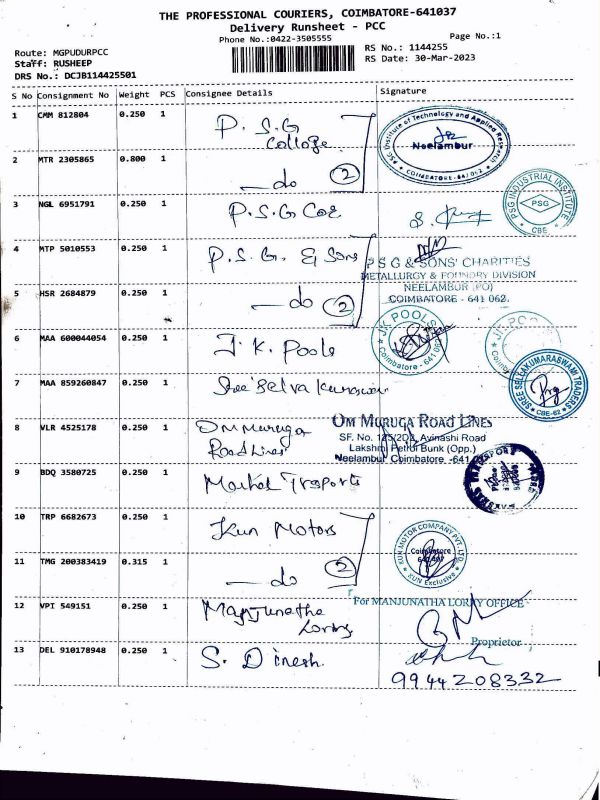 THE PROFESSIONAL COURIERS, COIMBATORE-641037
Delivery Runsheet - PCC
Phone No.:0422-3505555
Page No.:1
Route: MGPUDURPCC
RS No.: 1144255
Staff: RUSHEEP
RS Date: 30-Mar-2023
DRS No.: DCJB114425501
S No Consignment No Weight PCS Consignee Details Signature
1 CMM 812804 0.250 1 P.S.G College
PSG Institute of Technology and Applied Research
Neelambur
COIMBATORE-641 062
2 MTR 2305865 0.800 1 — do 2
3 NGL 6951791 0.250 1 P.S.G Coe
PSG INDUSTRIAL INSTITUTE
PSG
CBE
4 MTP 5010553 0.250 1 P.S.G. & Sons
P S G & SONS' CHARITIES
METALLURGY & FOUNDRY DIVISION
NEELAMBUR (PO)
COIMBATORE - 641 062.
5 HSR 2684879 0.250 1 — do 2
6 MAA 600044054 0.250 1 J.K. Pools
JK POOLS
Coimbatore - 641 062
JK POOLS
7 MAA 859260847 0.250 1 Sree Selva Kumaraswamy
SREE SELVAKUMARASWAMI TRADERS
CBE-62
8 VLR 4525178 0.250 1 Om Muruga
Road Lines
OM MURUGA ROAD LINES
SF. No. Avinashi Road
Lakshmi Petrol Bunk (Opp.)
Neelambur Coimbatore -641
9 BDQ 3580725 0.250 1
10 TRP 6682673 0.250 1 Kun Motors
KUN MOTOR COMPANY PVT. LTD.
Coimbatore
KUN Exclusive
11 TMG 200383419 0.315 1 — do 2
12 VPI 549151 0.250 1 Manjunatha
Lorry
For MANJUNATHA LORRY OFFICE
Proprietor
13 DEL 910178948 0.250 1 S. Dinesh
9944208332